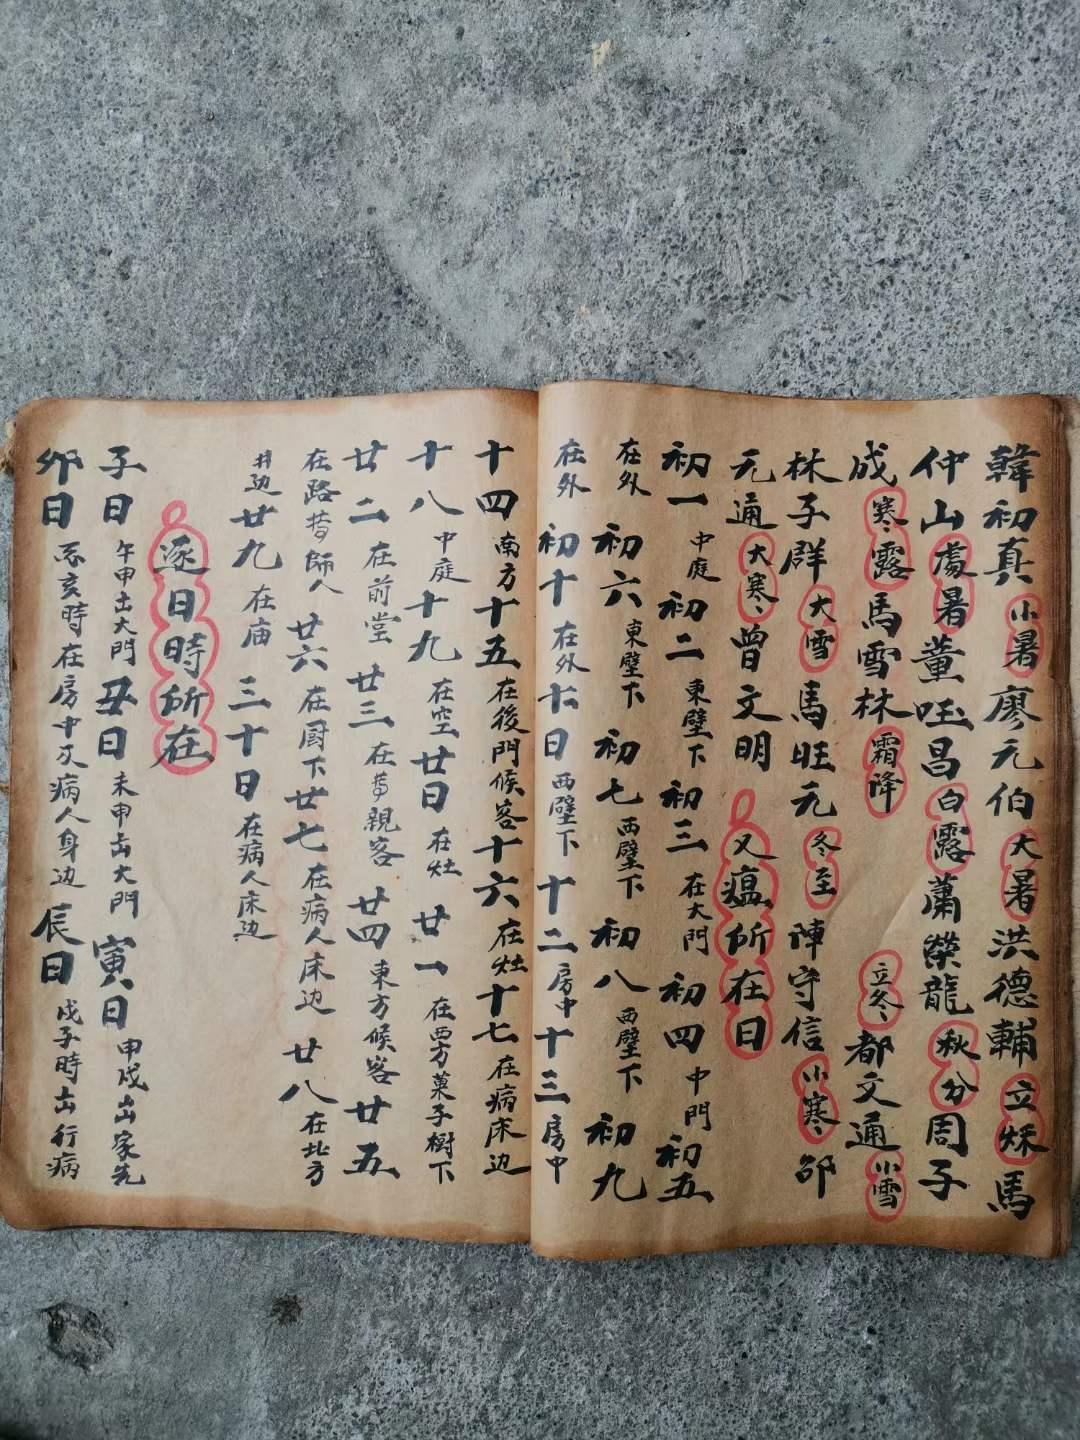 韓初真小暑廖元伯大暑洪德輔立秌馬
仲山處暑董㕵昌白露蕭榮龍秋分周子
成寒露馬雪林霜降立冬都文通小雪
林子群大雪馬旺元冬至陣守信小寒邵
元通大寒曾文明又瘟所在日
初一中庭初二東壁下初三在大門初四中門初五
在外初六東壁下初七西壁下初八西壁下初九
在外初十在外十日西壁下十二房中十三房中
十四南方十五在後門候客十六在灶十七在病床边
十八中庭十九在空廿日在灶廿一在西方菓子樹下
廿二在前堂廿三在親客廿四東方候客廿五
在路師人廿六在厨下廿七在病人床边廿八在北方
井边廿九在庙三十日在病人床边
逐日時所在
子日午申出大門丑日未申出大門寅日申戌出家先
卯日亥時在房中及病人身边辰日戊子時出行病